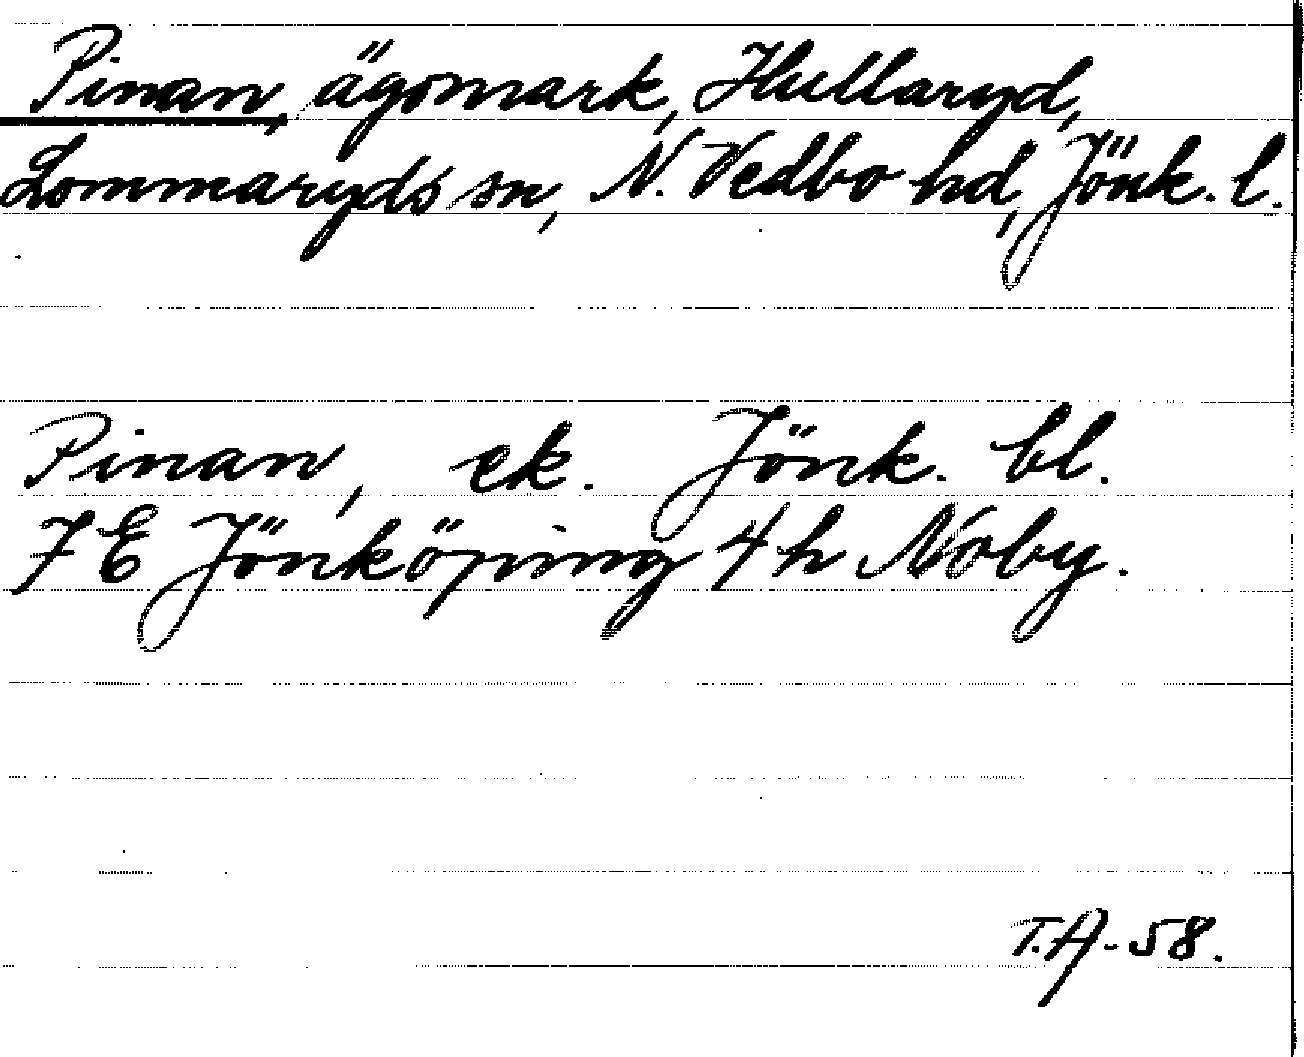 Pinan, ägomark, Hullaryd,
Lommaryds sn, N. Vedbo hd, Jönk. l.
Pinan, ek. Jönk. bl.
7 E Jönköping 4 h Noby.
T.A-58.